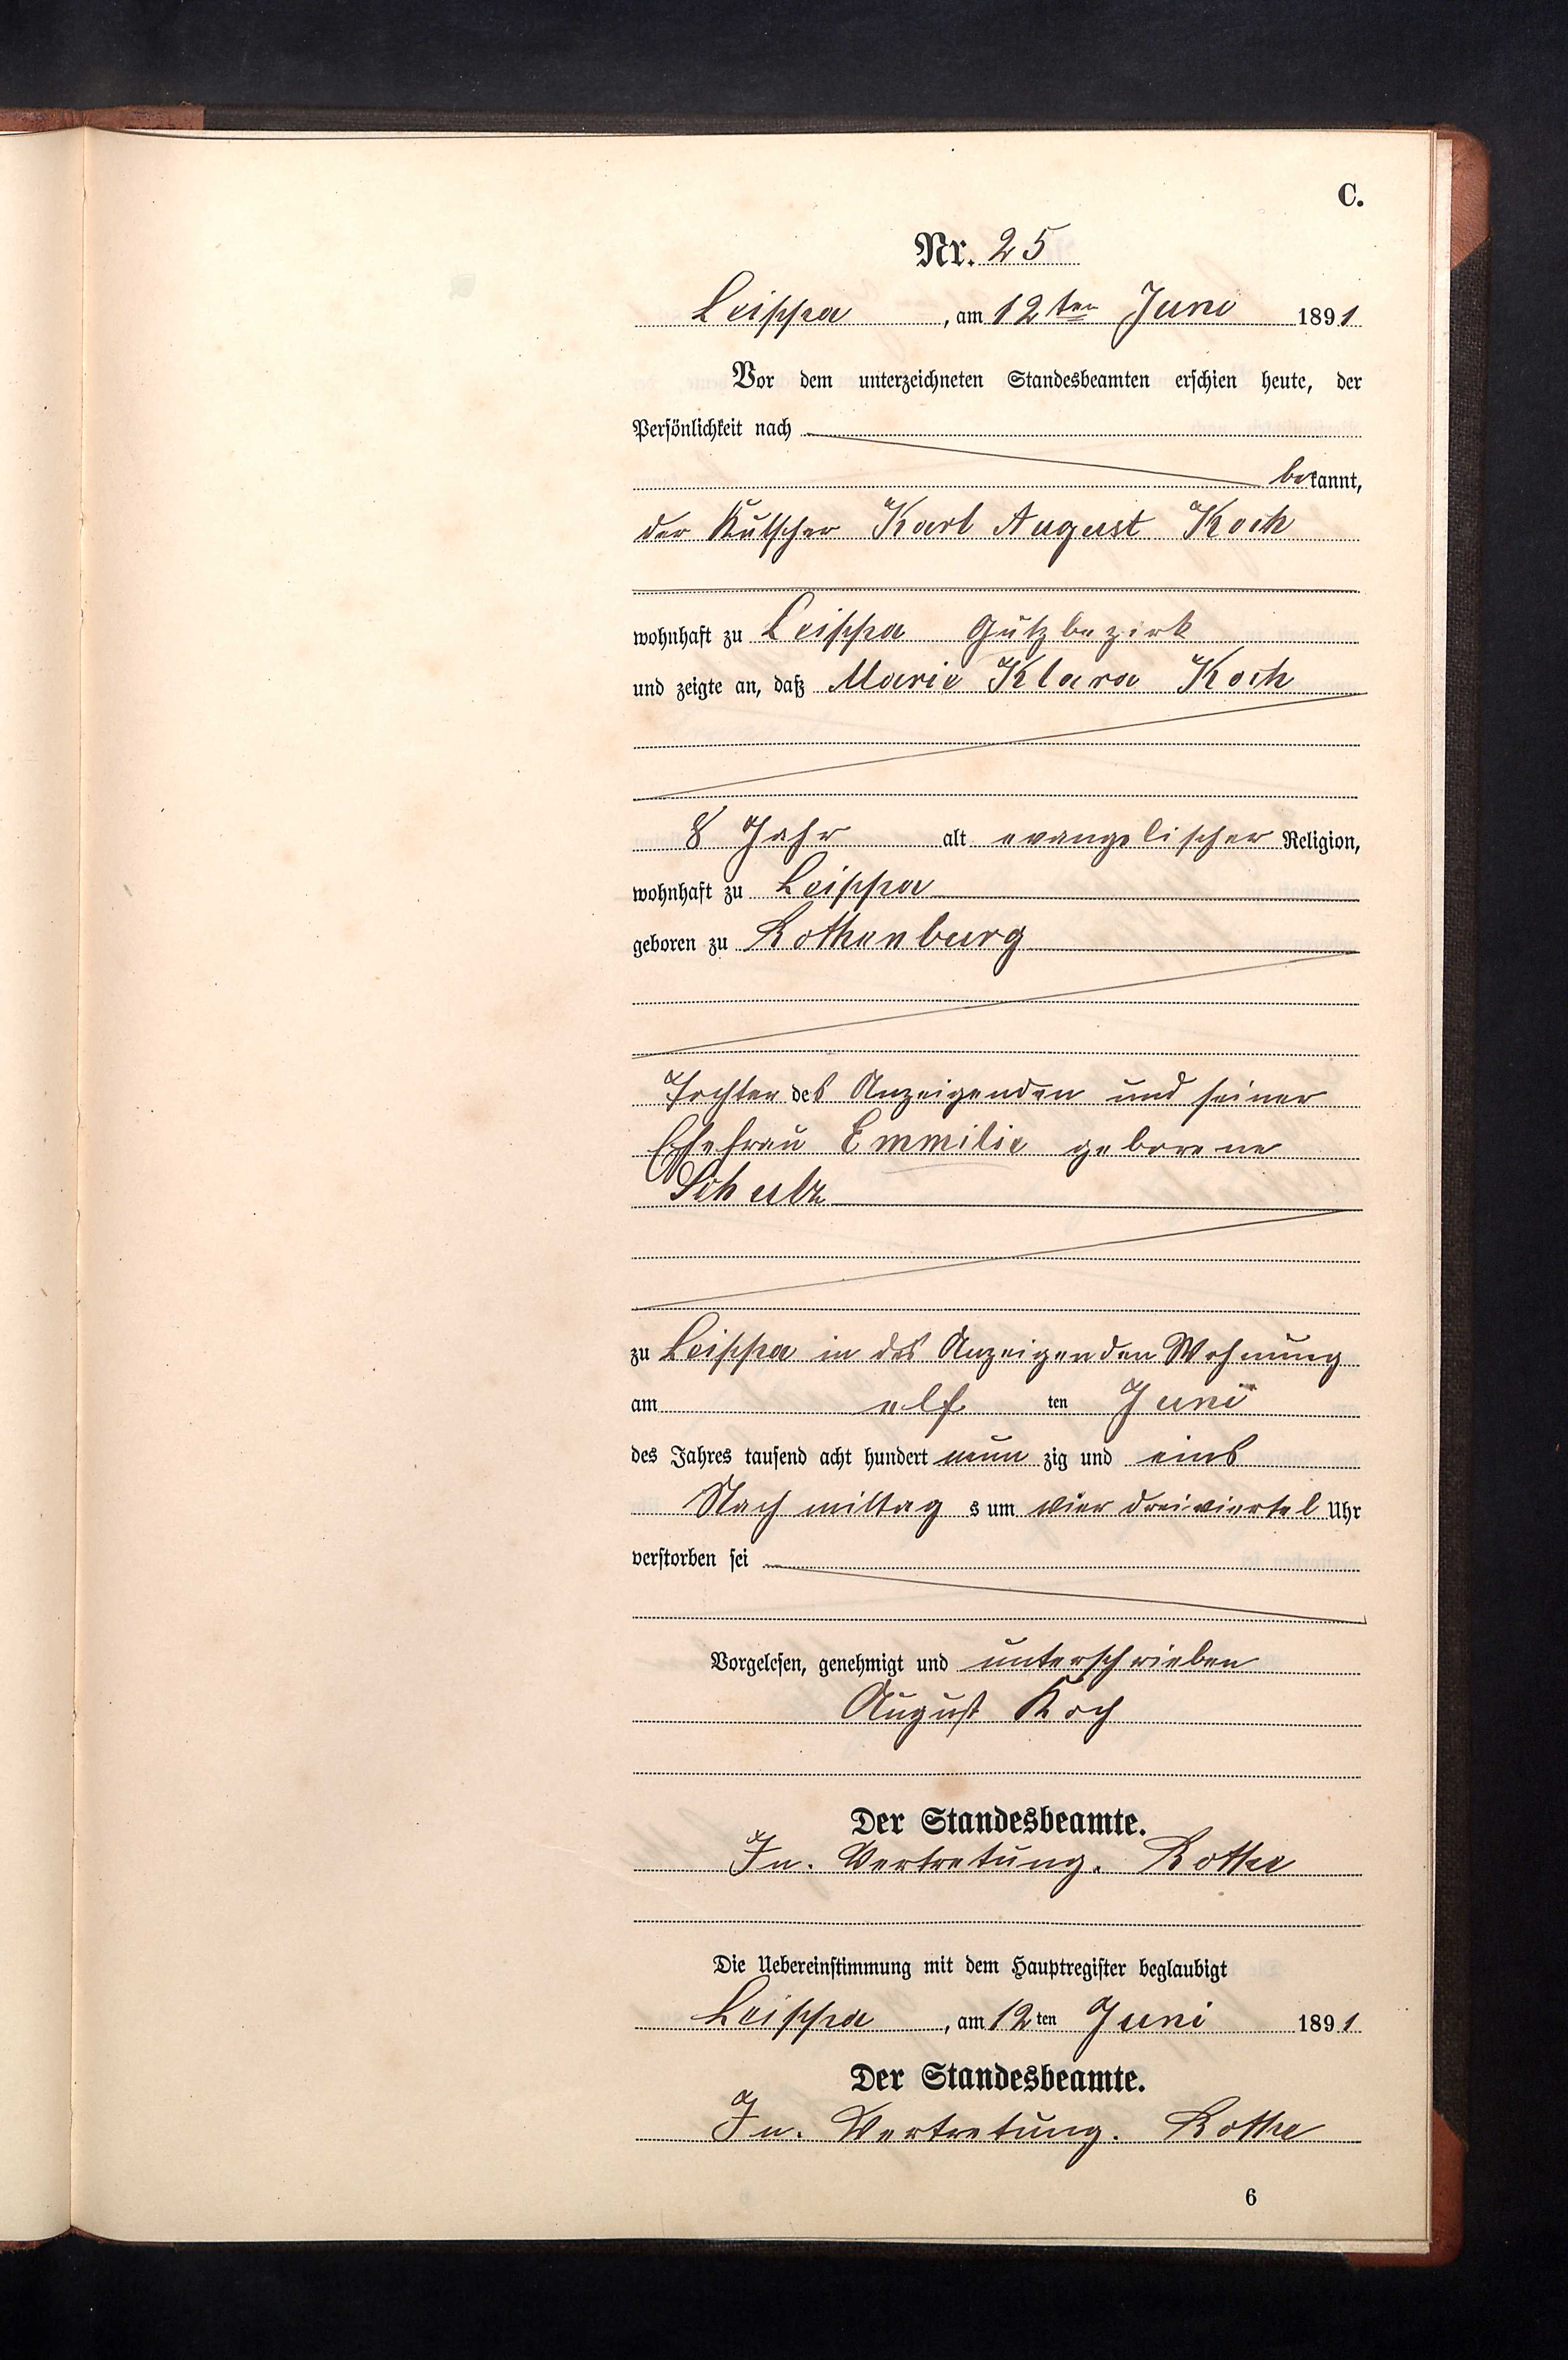 C.
Nr. 25
Leippa, am 12ten Juni 1891
Vor dem unterzeichneten Standesbeamten erschien heute, der
Persönlichkeit nach
bekannt,
der Kutscher Karl August Koch
wohnhaft zu Leippa Gutzbezirk
und zeigte an, daß Marie Klara Koch
8 Jahr alt evangelischer Religion,
wohnhaft zu Leippa
geboren zu Rothenburg
Tochter des Anzeigenden und seiner
Ehefrau Emmilie geborene
Schulz
zu Leippa in des Anzeigenden Wohnung
am elf ten Juni
des Jahres tausend acht hundert neun zig und eins
Nachmittag s um vier dreiviertel Uhr
verstorben sei
Vorgelesen, genehmigt und unterschrieben
August Koch
Der Standesbeamte.
In. Vertretung. Rothe
Die Uebereinstimmung mit dem Hauptregister beglaubigt
Leippa, am 12ten Juni 1891
Der Standesbeamte.
In. Vertretung. Rothe
6